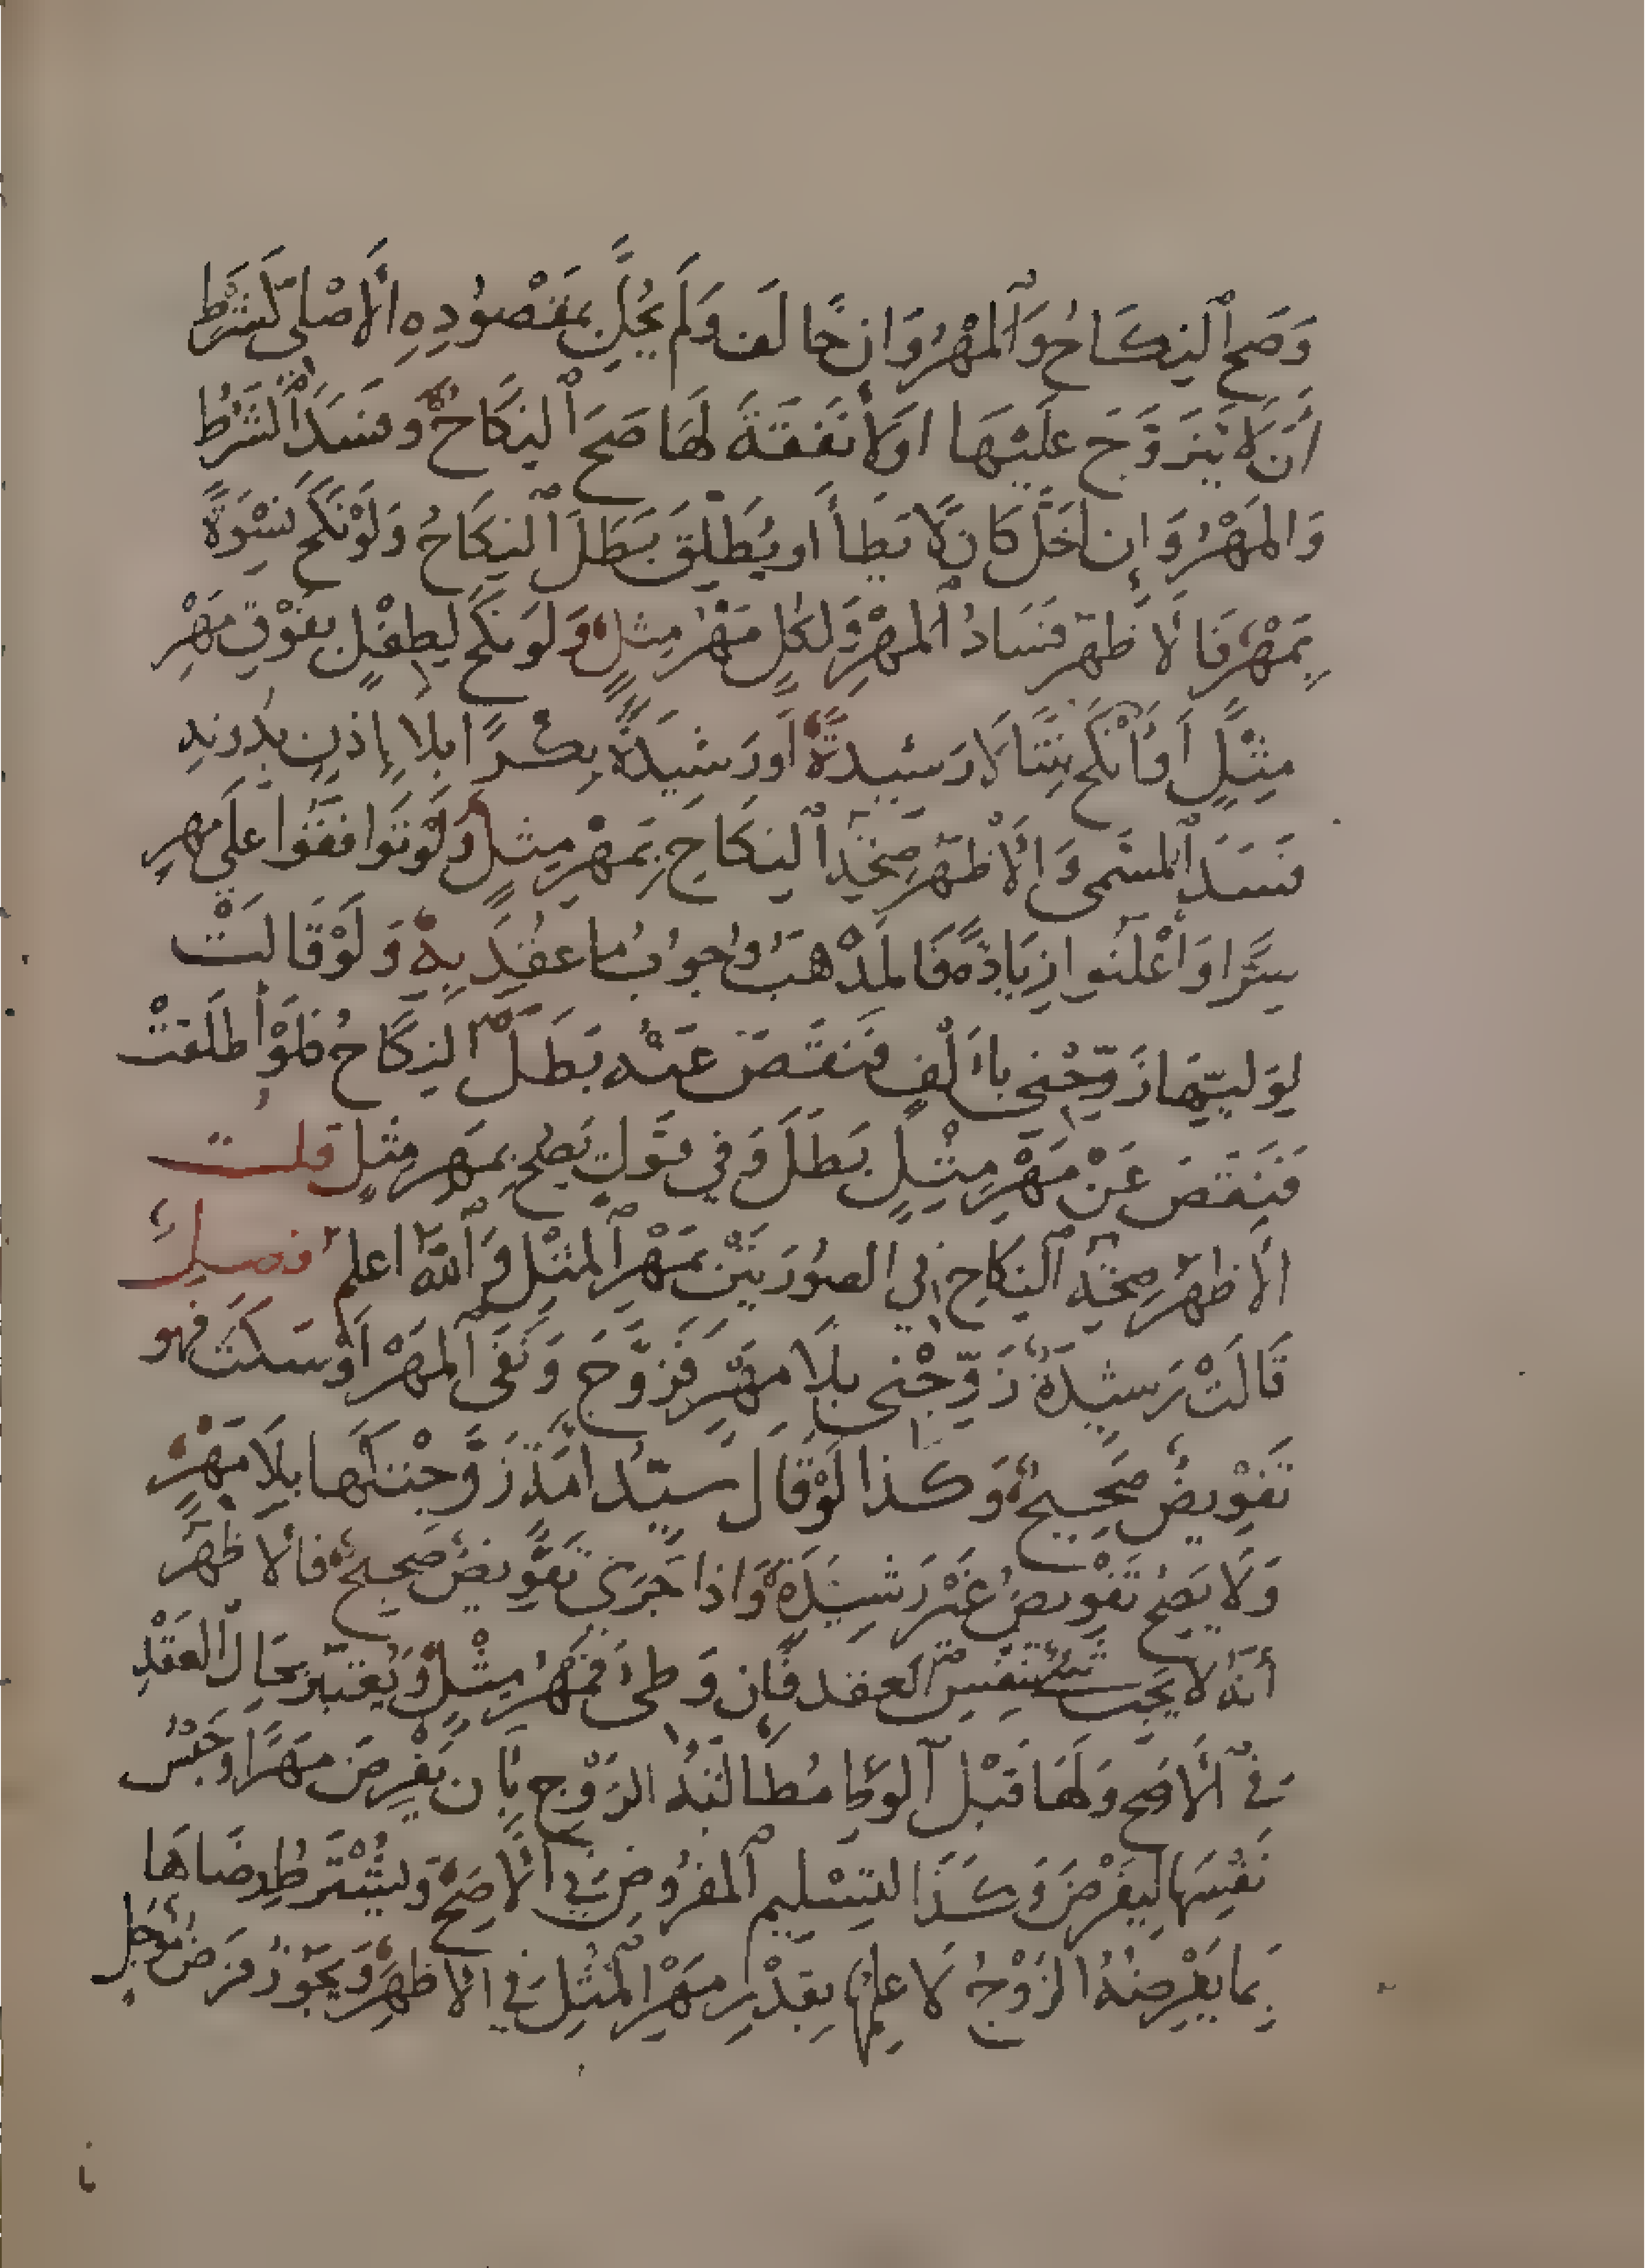 وَصَحَّ ٱلنِكَاحُ وَٱلْمَهْرُ وَان خَالَف وَلَم يُخِلَّ بِمَقْصُودِهِ الْأَصْلِيّ كَشَرْطِ
أَن لَا يَتَزَوَّجَ عَلَيْهَا اولَا نَفَقَةَ لَهَا صَحَّ ٱلنِكَاحُ وَفَسَدَ ٱلشَّرْطُ
وَالمَهْرُ وَإِن أَخَلَّ كَان لَّا يَطَأَ او يُطَلِّقَ بَطَلَ ٱلنِكَاحُ وَلَوْ نَكَحَ نِسْوَةً
بِمَهْرٍ فَالأَظْهَر فَسَادُ ٱلمَهْرِ وَلكُلٍّ مَهْرُ مِثلٍ وَلَو نكَحَ لِطِفْلٍ بِفَوْقِ مَهْرِ
مِثْلٍ أَوْ أَنْكَحَ بِنْتًا لَا رَشِيدةً أَو رَشِيدَةً بِكْرًا بِلَا إِذنٍ بِدُونِهِ
فَسَدَ ٱلمسَمى وَالأَظْهَر صِحَّة ٱلنِكَاحِ بِمَهْرِ مِثلٍ وَلَوْ تَوَافَقُوا عَلَى مهرٍ
سِرًّا وَأَعْلَنُوا زِيَادَةً فَالمَذْهَبُ وُجوُبُ مَا عُقِدَ بِهْ وَلَوْ قَالَتْ
لِوَلِيّهَا زَوّجْنِي بِأَلْفٍ فَنَقَصَ عَنْهُ بَطَلَ ٱلنِكَاحُ فَلَوْ أَطْلَقَتْ
فَنَقَصَ عَنْ مَهْرِ مِثْلٍ بَطَلَ وَفِي قَولٍ يَصِحُّ بِمَهرِ مِثلٍ قلت
الأظهَر صِحَّة ٱلنِكَاحِ فِي الصُورَتَيْن بِمَهْرِ ٱلمِثْلِ وَٱللهُ اعلم فصل
قَالَتْ رَشِيدَةٌ زَوّجْنِي بِلَا مَهْرٍ فَزَوَّجَ وَنَفَى ٱلمَهْرَ أَوْ سَكَتَ فهو
تَفْوِيضٌ صَحِيحٌ وَكَذا لَوْ قَال سَيِّدُ أمَةٍ زَوَّجْتُكَهَا بِلَا مَهْرٍ
وَلَا يَصِحُّ تَفْوِيضُ غَيْر رَشِيدَةٍ وَاذا جَرَى تَفْوِيضٌ صَحِيحٌ فالأظْهَرُ
أنَّهُ لَا يَجِبُ شَيْءٌ بِنَفْسِ ٱلعَقد فَإِن وَطئَ فَمَهْرُ مِثْلٍ وَيُعْتَبَر بِحَالِ ٱلعَقْدِ
فِي ٱلأَصَح وَلَهَا قَبْلَ ٱلوَطْءِ مُطَالَبَةُ الزَّوْجِ بِأَن يَفْرِضَ مَهْرًا وَحَبْسُ
نَفْسِهَا لِيَفْرِضَ وَكَذَا لِتَسْلِيمِ ٱلمَفرُوضِ فِي ٱلأَصَحْ وَيُشْتَرَطُ رِضَاهَا
بِمَا يَفْرِضُهُ الزَّوْجُ لَا عِلمُهَا بِقَدْرِ مَهْرِ ٱلمِثْلِ فِي الأَظْهَرِ وَيَجُوزُ فَرضُ مُؤَجَّلٍ
با